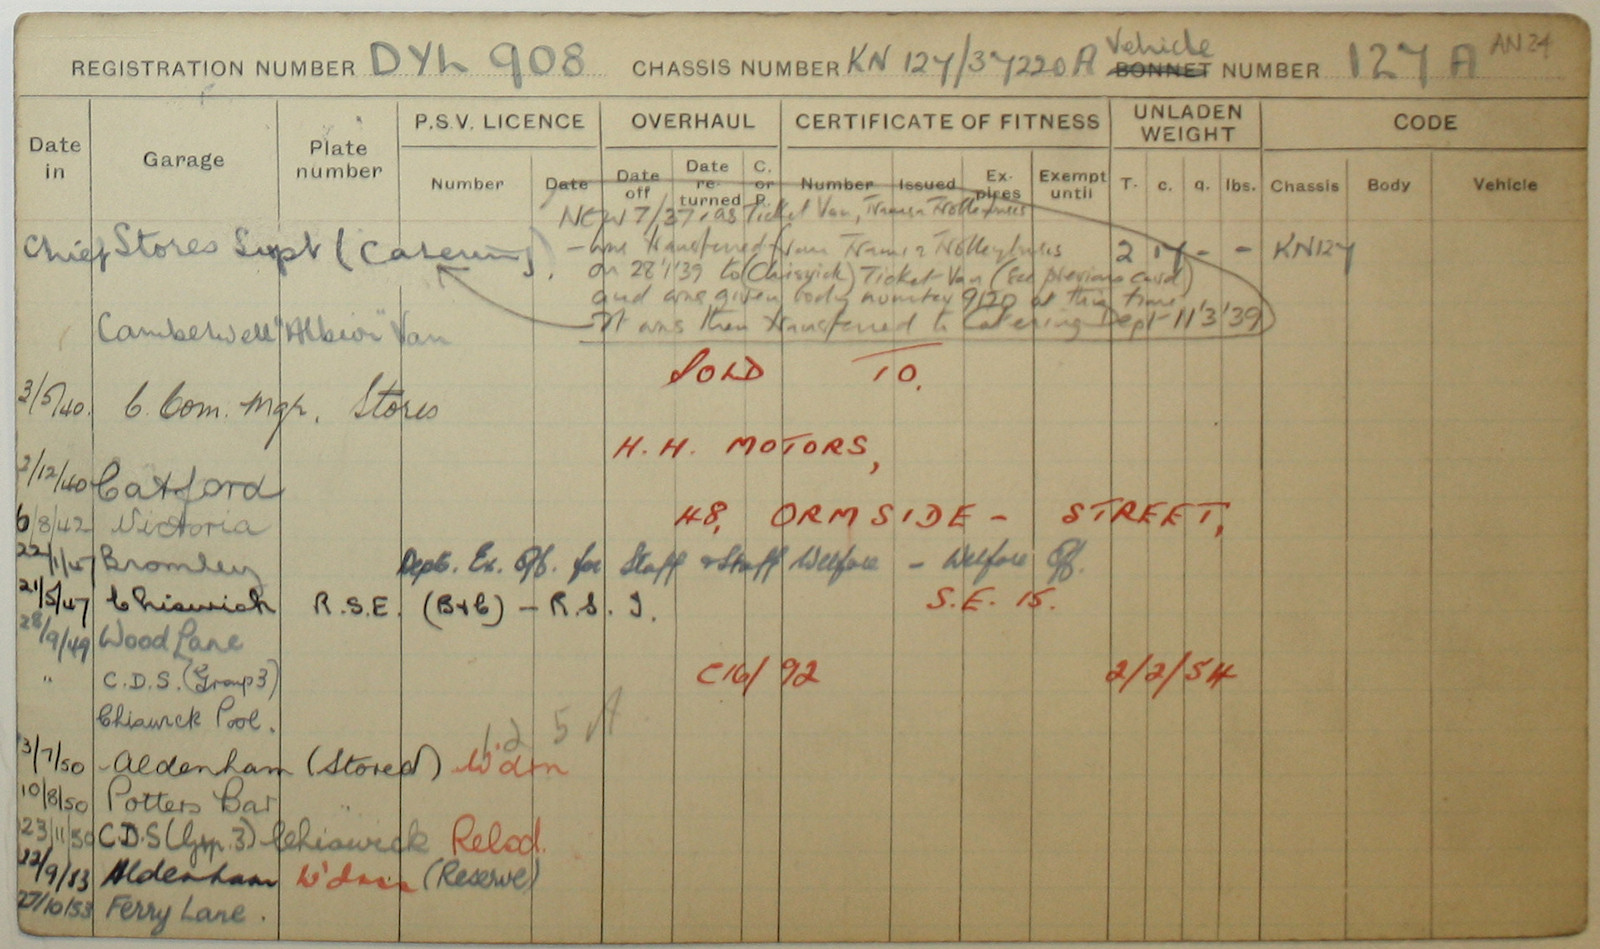 REGISTRATION NUMBER DYL 908 CHASSIS NUMBER KN 127/37220 A Vehicle BONNET NUMBER 127 A AN 24
Date in Garage Plate number P.S.V. LICENCE OVERHAUL CERTIFICATE OF FITNESS UNLADEN WEIGHT CODE
Number Date Date off Date re-turned C. or P. Number Issued Ex-pires Exempt until T. c. q. lbs. Chassis Body Vehicle
NEW 7/37, as Ticket Van, Trams & Trolleybuses
Chief Stores Supt (Catering). - was transferred from Trams & Trolleybuses 2 17 - - KN127
on 28'1'39 to (Chiswick) Ticket Van (see previous card)
and was given body number 9120 at this time
Camberwell "Albion" Van It was then transferred to Catering Dept 11'3'39
SOLD TO.
3/5/40. C. Com. Mgr. Stores
H.H. MOTORS,
2/12/40 Catford
6/8/42 Victoria 48, ORMSIDE - STREET,
22/1/47 Bromley Dept. Ex. Off. for Staff & Staff Welfare - Welfare Off.
21/5/47 Chiswick R.S.E. (B+C) - R.S.I. S.E. 15.
28/9/49 Wood Lane
" C.D.S. (Group 3) C16/92 2/2/54
Chiswick Pool.
3/7/50 Aldenham (Stored) W'drn
10/8/50 Potters Bar
23/11/50 C.D.S (Grp. 3) Chiswick Relcd.
22/9/53 Aldenham W'drn (Reserve)
27/10/53 Ferry Lane.